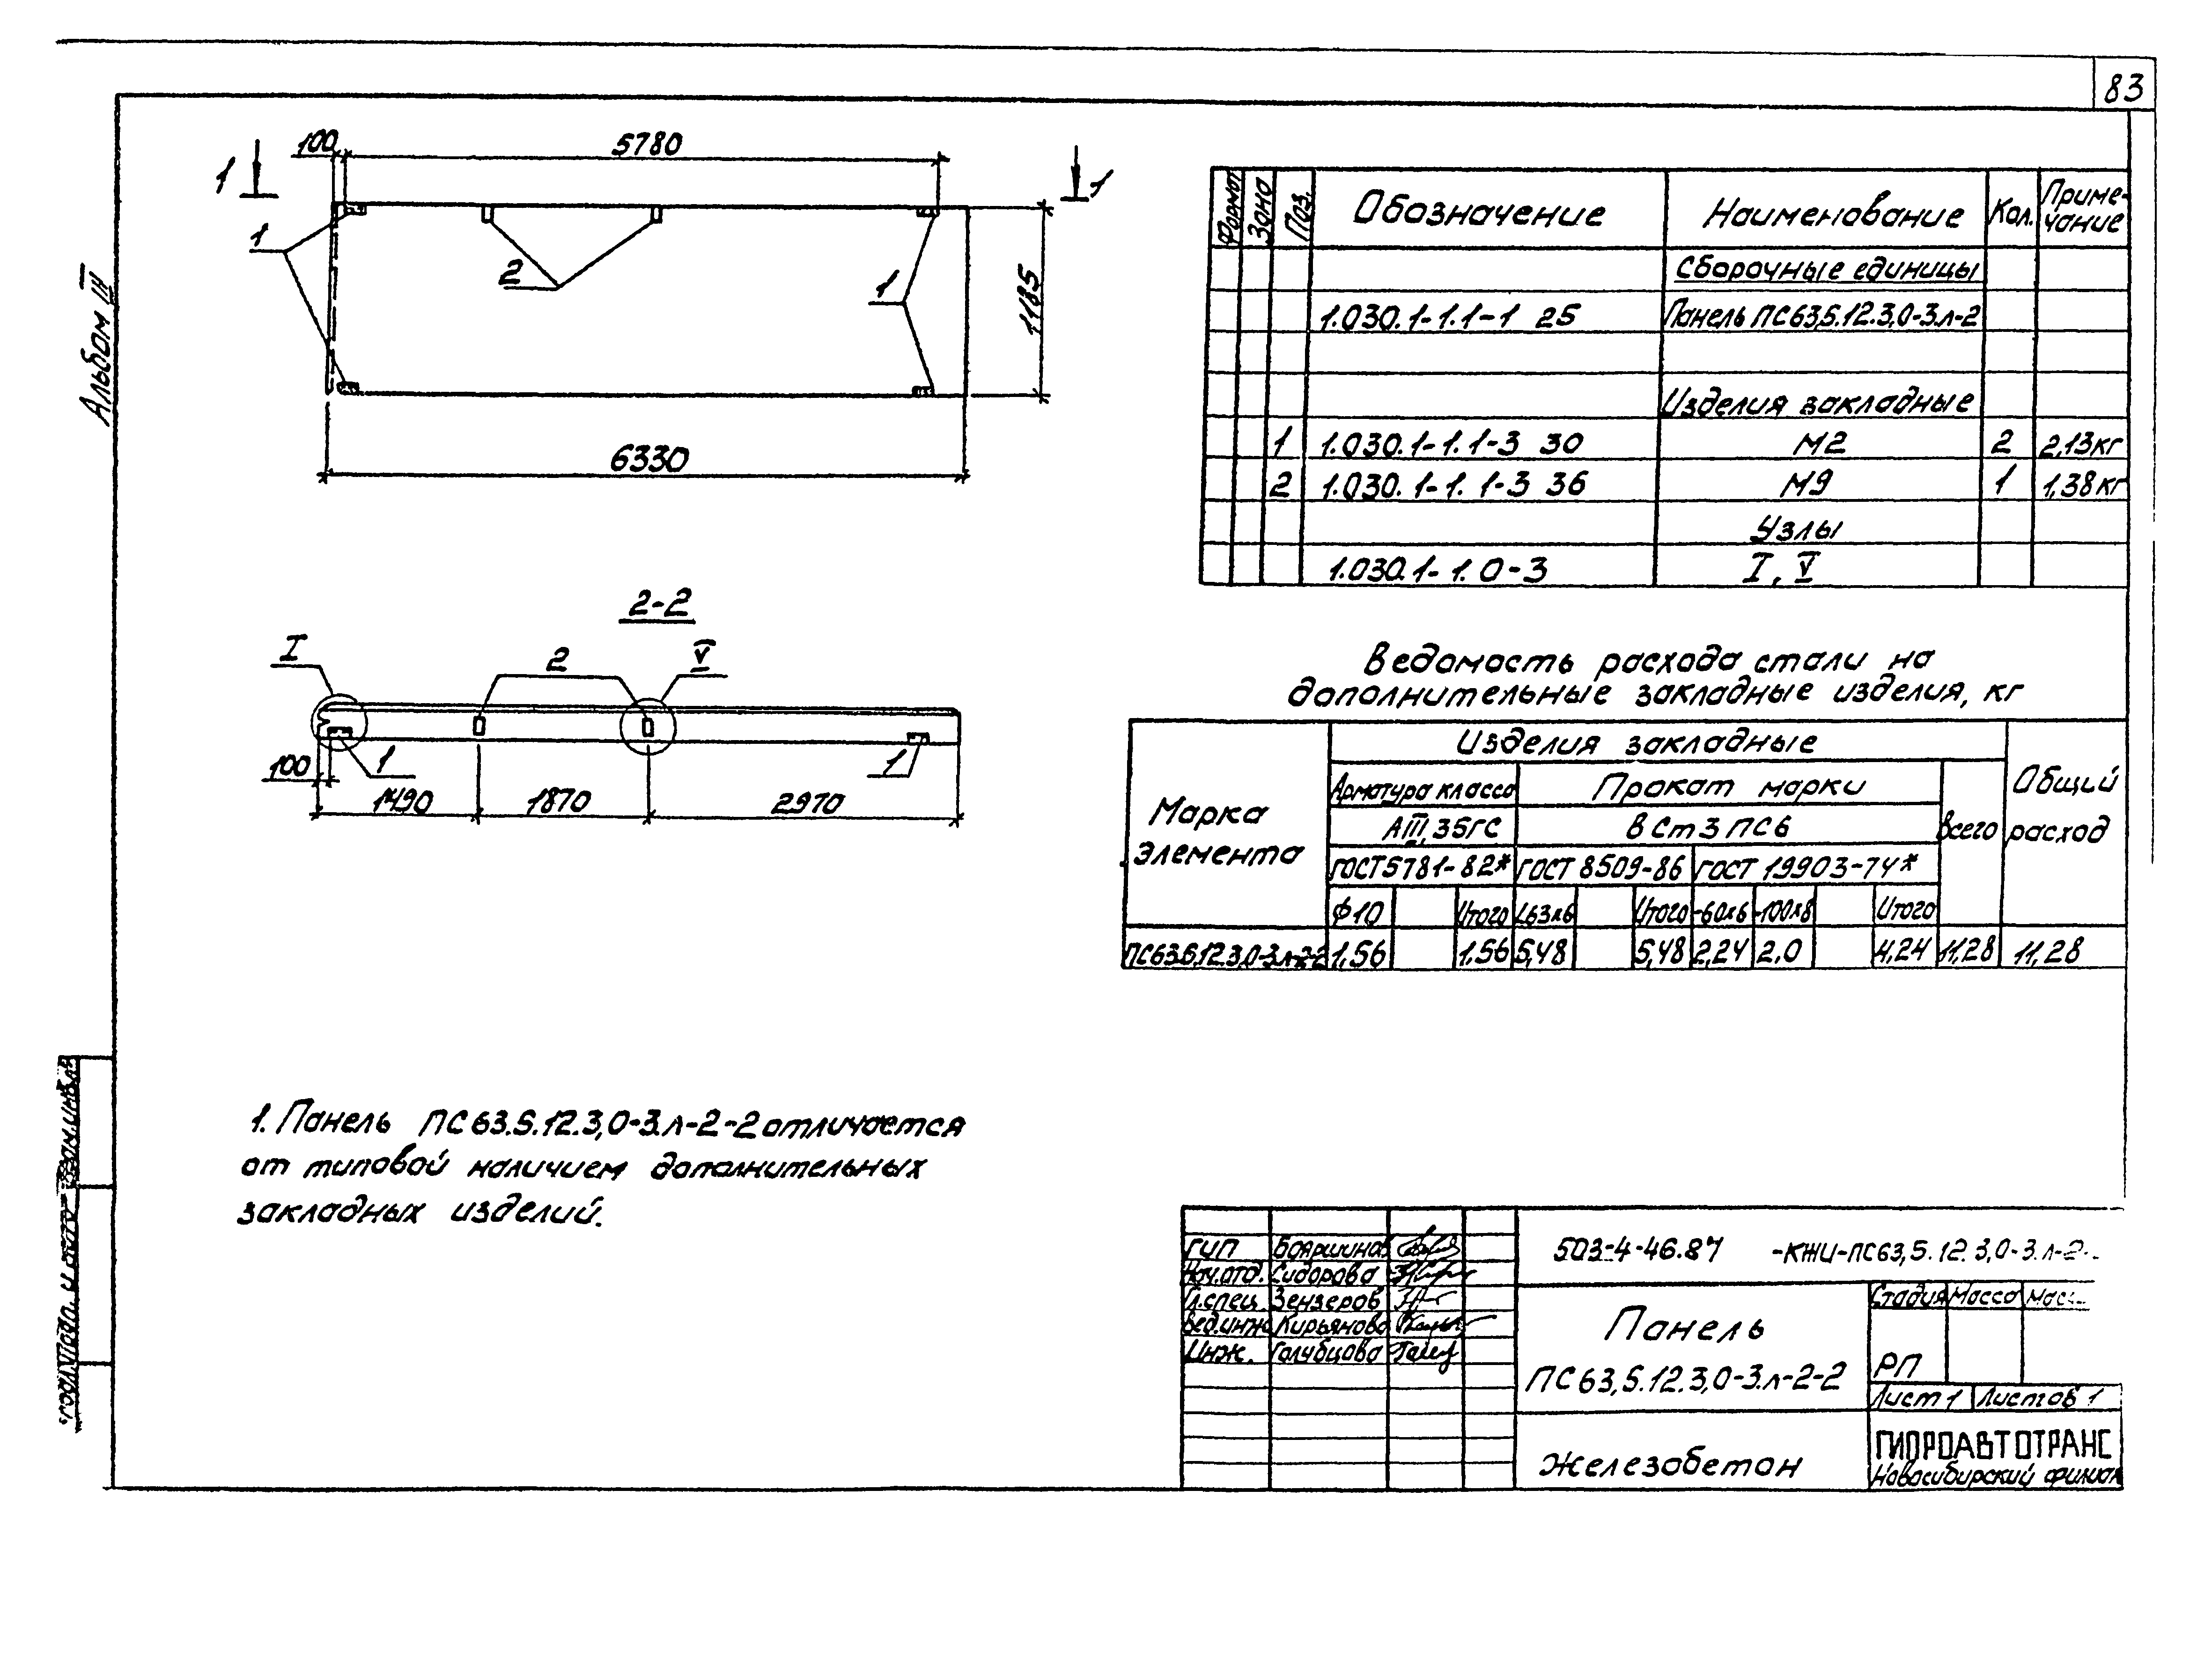 83
Альбом III
100
5780
1
1
1
2
1
1185
6330
2-2
I
2
V
100
1
1
1490
1870
2970
Формат Зона Поз. Обозначение Наименование Кол. Приме-
чание
Сборочные единицы
1.030.1-1.1-1 25 Панель ПС63,5.12.3,0-3.л-2
Изделия закладные
1 1.030.1-1.1-3 30 М2 2 2,13кг
2 1.030.1-1.1-3 36 М9 1 1,38кг
Узлы
1.030.1-1.0-3 I, V
Ведомость расхода стали на
дополнительные закладные изделия, кг
Марка
элемента
Изделия закладные
Общий
расход
Арматура класса Прокат марки
всего
АIII, 35ГС ВСт3ПС6
ГОСТ5781-82* ГОСТ 8509-86 ГОСТ 19903-74*
ф10 Итого L63х6 Итого -60х6 -100х8 Итого
ПС63,5.12.3,0-3.л-2-2 1,56 1,56 5,48 5,48 2,24 2,0 4,24 11,28 11,28
1. Панель ПС63.5.12.3,0-3.л-2-2 отличается
от типовой наличием дополнительных
закладных изделий.
ГИП Бояршинов
Нач.отд. Сидорова
Гл.спец. Зензеров
Вед.инж. Кирьянова
Инж. Голубцова
503-4-46.87 -КЖИ-ПС63,5.12.3,0-3.л-2-
Панель
ПС63,5.12.3,0-3.л-2-2
Стадия Масса
РП
Лист 1 Листов 1
Железобетон
ГИПРОАВТОТРАНС
Новосибирский филиал